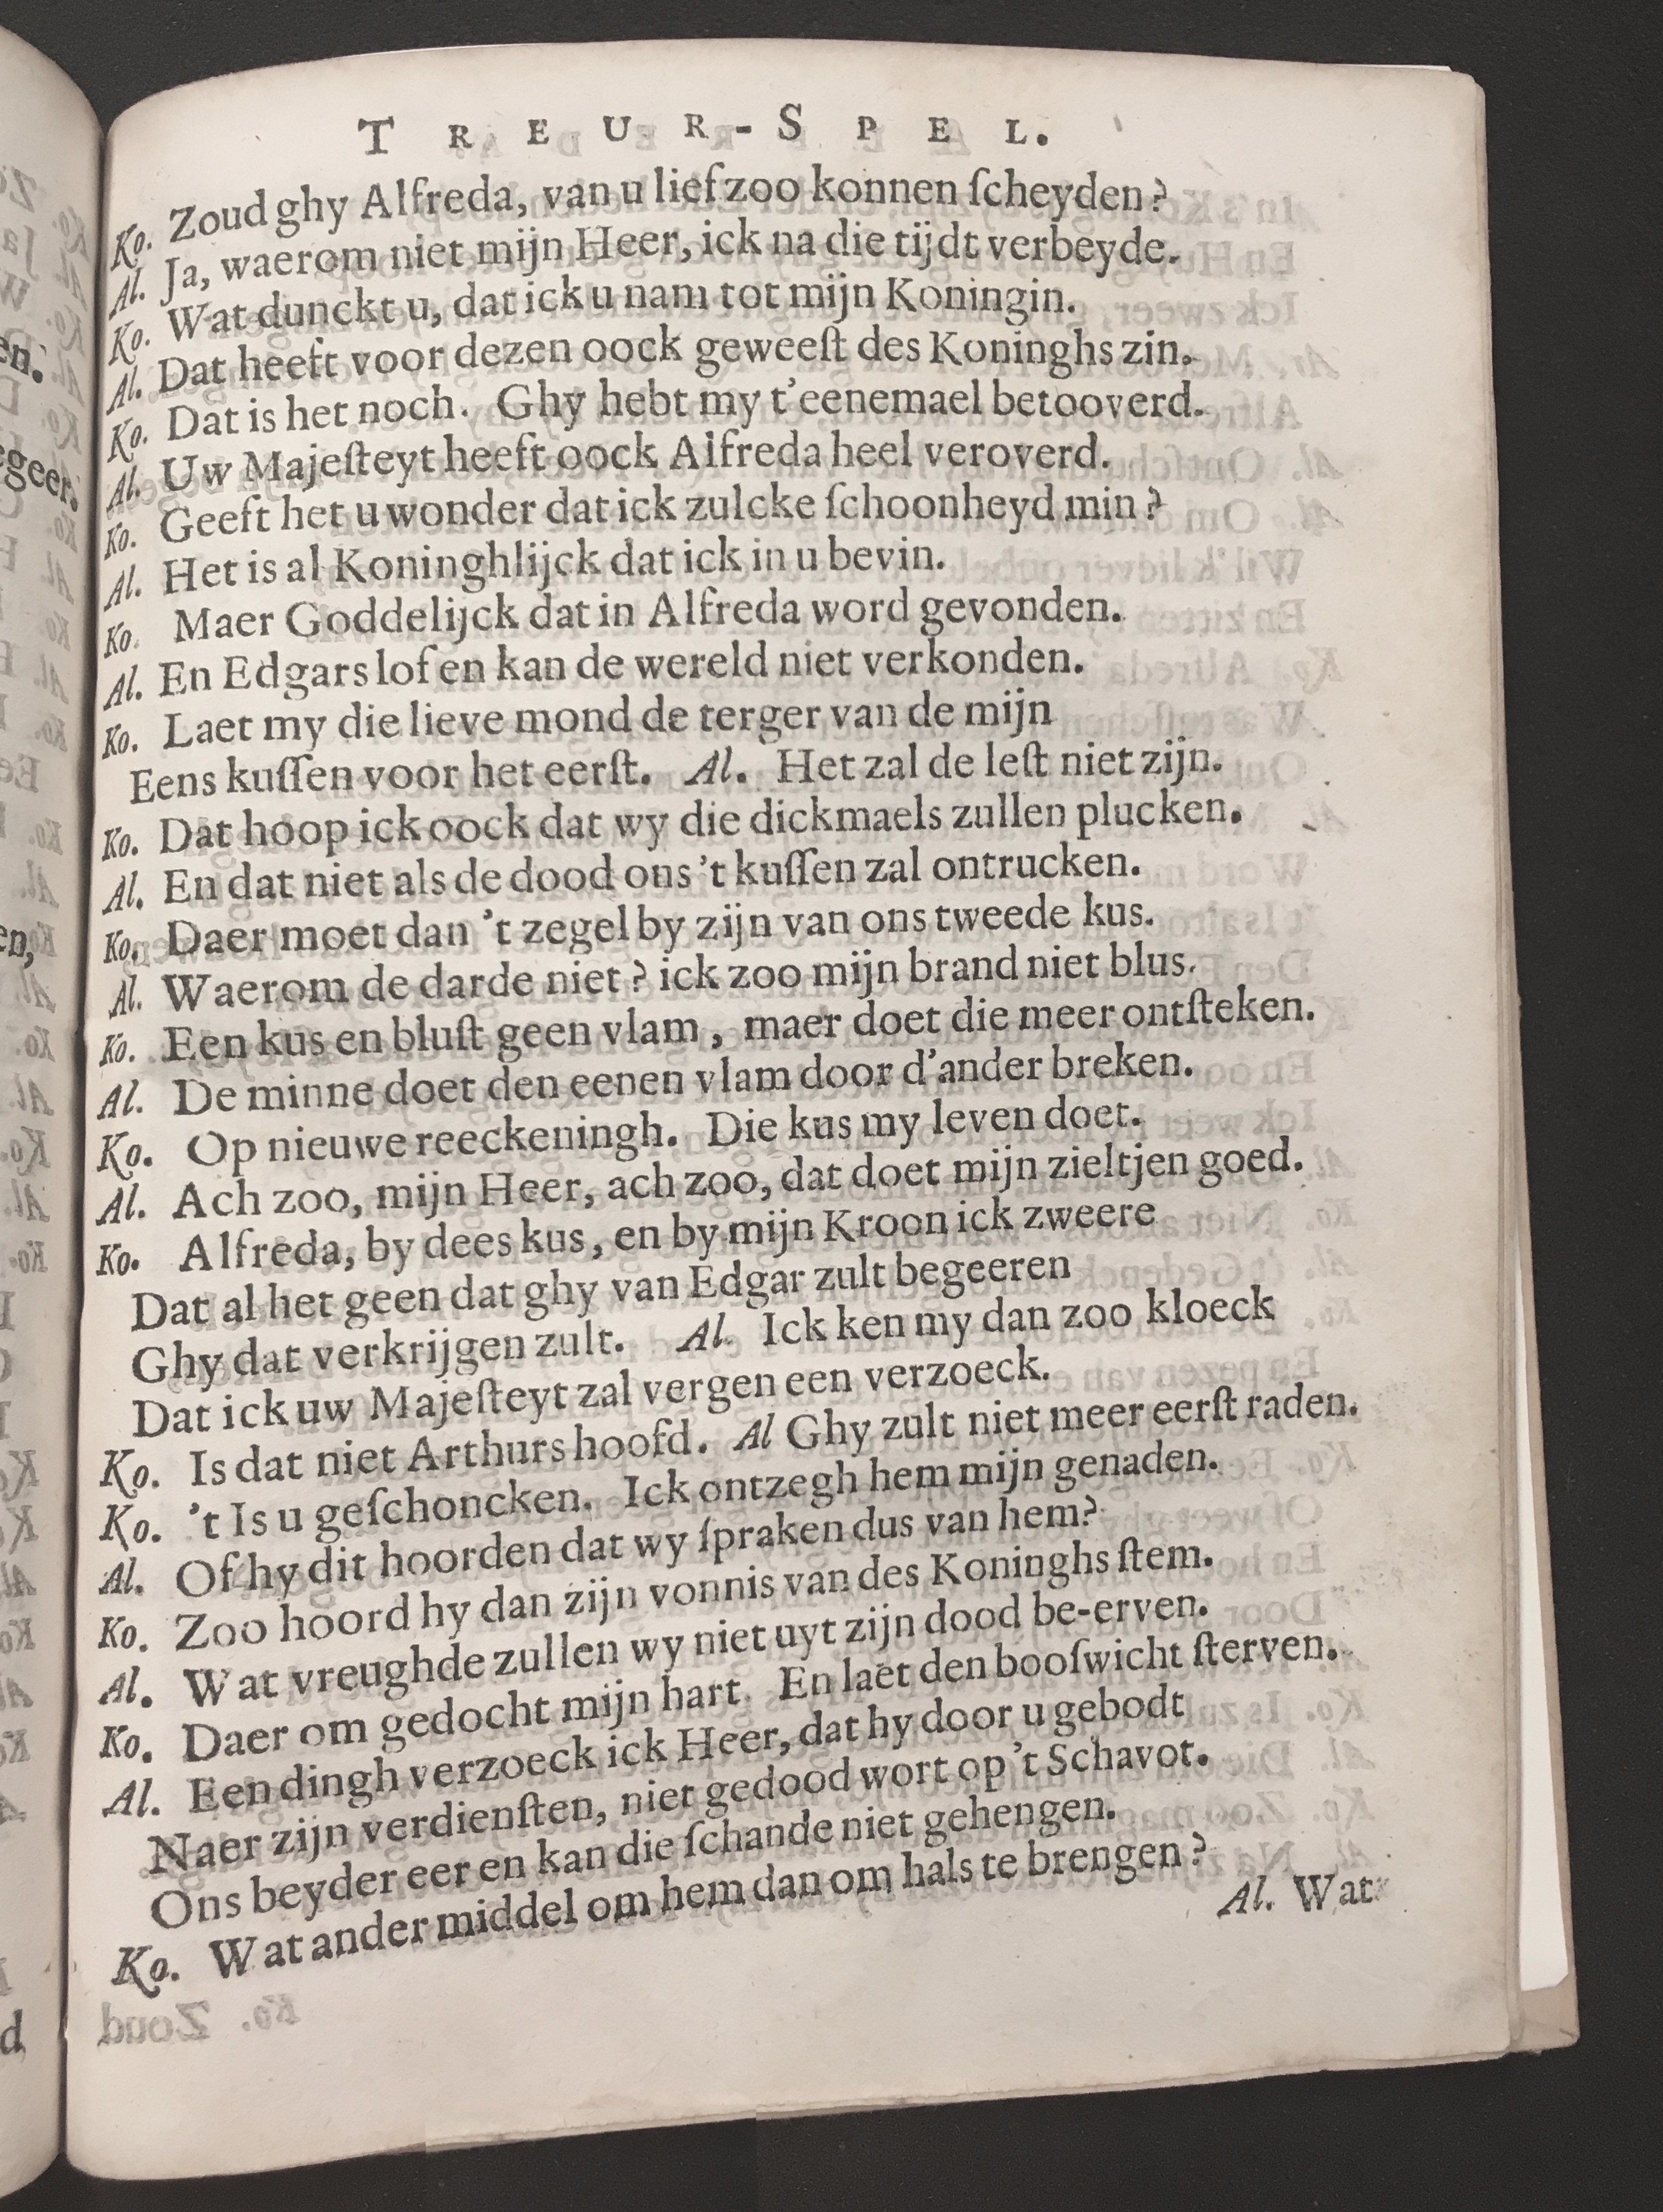 TREUR-SPEL.
Ko. Zoud ghy Alfreda, van u lief zoo konnen ſcheyden?
Al. Ja, waerom niet mijn Heer, ick na die tijdt verbeyde.
Ko. Wat dunckt u, dat ick u nam tot mijn Koningin.
Al. Dat heeft voor dezen oock geweeſt des Koninghs zin.
Ko. Dat is het noch. Ghy hebt my t'eenemael betooverd.
Al. Uw Majeſteyt heeft oock Alfreda heel veroverd.
Ko. Geeft het u wonder dat ick zulcke ſchoonheyd min?
Al. Het is al Koninghlijck dat ick in u bevin.
Ko. Maer Goddelijck dat in Alfreda word gevonden.
Al. En Edgars lof en kan de wereld niet verkonden.
Ko. Laet my die lieve mond de terger van de mijn
Eens kuſſen voor het eerſt. Al. Het zal de leſt niet zijn.
Ko. Dat hoop ick oock dat wy die dickmaels zullen plucken.
Al. En dat niet als de dood ons 't kuſſen zal ontrucken.
Ko. Daer moet dan 't zegel by zijn van ons tweede kus.
Al. Waerom de darde niet? ick zoo mijn brand niet blus.
Ko. Een kus en bluſt geen vlam, maer doet die meer ontſteken.
Al. De minne doet den eenen vlam door d'ander breken.
Ko. Op nieuwe reeckeningh. Die kus my leven doet.
Al. Ach zoo, mijn Heer, ach zoo, dat doet mijn zieltjen goed.
Ko. Alfreda, by dees kus, en by mijn Kroon ick zweere
Dat al het geen dat ghy van Edgar zult begeeren
Ghy dat verkrijgen zult. Al. Ick ken my dan zoo kloeck
Dat ick uw Majeſteyt zal vergen een verzoeck.
Ko. Is dat niet Arthurs hoofd. Al Ghy zult niet meer eerſt raden.
Ko. 't Is u geſchoncken. Ick ontzegh hem mijn genaden.
Al. Of hy dit hoorden dat wy ſpraken dus van hem?
Ko. Zoo hoord hy dan zijn vonnis van des Koninghs ſtem.
Al. Wat vreughde zullen wy niet uyt zijn dood be-erven.
Ko. Daer om gedocht mijn hart. En laet den booſwicht ſterven.
Al. Een dingh verzoeck ick Heer, dat hy door u gebodt
Naer zijn verdienſten, niet gedood wort op 't Schavot.
Ons beyder eer en kan die ſchande niet gehengen.
Ko. Wat ander middel om hem dan om hals te brengen?
Al. Wat